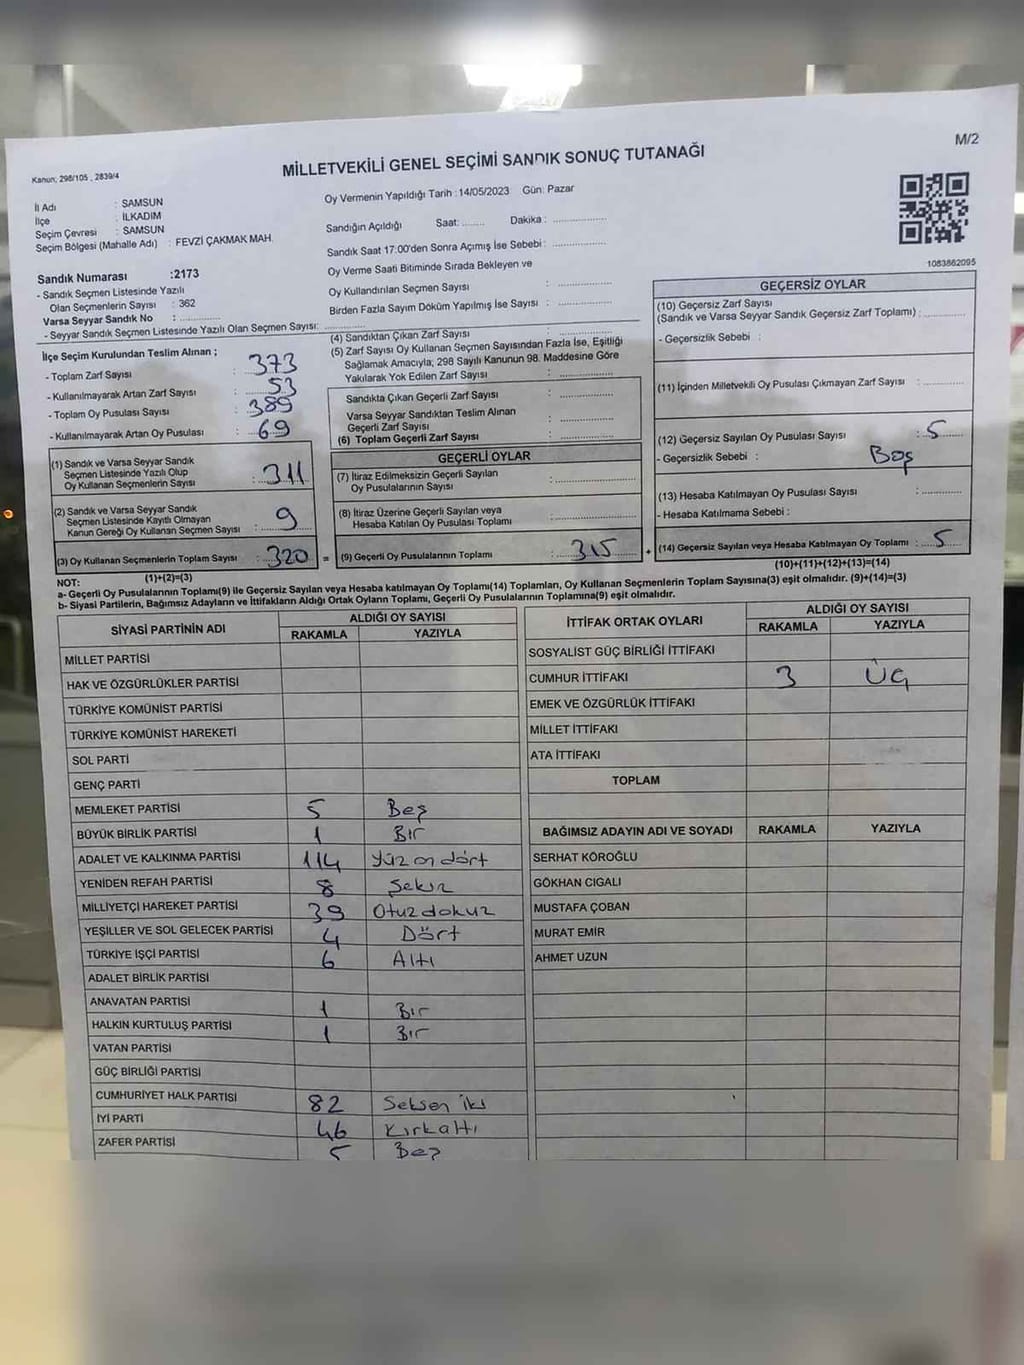 M/2
MİLLETVEKİLİ GENEL SEÇİMİ SANDIK SONUÇ TUTANAĞI
Kanun; 298/105 , 2839/4
İl Adı : SAMSUN
İlçe : İLKADIM
Seçim Çevresi : SAMSUN
Seçim Bölgesi (Mahalle Adı) : FEVZİ ÇAKMAK MAH.
Oy Vermenin Yapıldığı Tarih : 14/05/2023 Gün: Pazar
Sandığın Açıldığı Saat: ........ Dakika : ..................
Sandık Saat 17:00'den Sonra Açımış İse Sebebi : ..................
Oy Verme Saati Bitiminde Sırada Bekleyen ve
Oy Kullandırılan Seçmen Sayısı : ..................
Birden Fazla Sayım Döküm Yapılmış İse Sayısı : ..................
1083862095
Sandık Numarası :2173
- Sandık Seçmen Listesinde Yazılı
Olan Seçmenlerin Sayısı : 362
Varsa Seyyar Sandık No : ............
- Seyyar Sandık Seçmen Listesinde Yazılı Olan Seçmen Sayısı: ............
İlçe Seçim Kurulundan Teslim Alınan ;
- Toplam Zarf Sayısı : 373
- Kullanılmayarak Artan Zarf Sayısı : 53
- Toplam Oy Pusulası Sayısı : 389
- Kullanılmayarak Artan Oy Pusulası : 69
(1) Sandık ve Varsa Seyyar Sandık
Seçmen Listesinde Yazılı Olup
Oy Kullanan Seçmenlerin Sayısı : 311
(2) Sandık ve Varsa Seyyar Sandık
Seçmen Listesinde Kayıtlı Olmayan
Kanun Gereği Oy Kullanan Seçmen Sayısı : 9
(3) Oy Kullanan Seçmenlerin Toplam Sayısı : 320 =
(1)+(2)=(3)
(4) Sandıktan Çıkan Zarf Sayısı : ..................
(5) Zarf Sayısı Oy Kullanan Seçmen Sayısından Fazla İse, Eşitliği
Sağlamak Amacıyla; 298 Sayılı Kanunun 98. Maddesine Göre
Yakılarak Yok Edilen Zarf Sayısı : ..................
Sandıkta Çıkan Geçerli Zarf Sayısı : ..................
Varsa Seyyar Sandıktan Teslim Alınan
Geçerli Zarf Sayısı : ..................
(6) Toplam Geçerli Zarf Sayısı : ..................
GEÇERLİ OYLAR
(7) İtiraz Edilmeksizin Geçerli Sayılan
Oy Pusulalarının Sayısı : ..................
(8) İtiraz Üzerine Geçerli Sayılan veya
Hesaba Katılan Oy Pusulası Toplamı : ..................
(9) Geçerli Oy Pusulalarının Toplamı : 315 +
GEÇERSİZ OYLAR
(10) Geçersiz Zarf Sayısı
(Sandık ve Varsa Seyyar Sandık Geçersiz Zarf Toplamı) : ............
- Geçersizlik Sebebi :
(11) İçinden Milletvekili Oy Pusulası Çıkmayan Zarf Sayısı : ............
(12) Geçersiz Sayılan Oy Pusulası Sayısı : 5
- Geçersizlik Sebebi : Boş
(13) Hesaba Katılmayan Oy Pusulası Sayısı : ............
- Hesaba Katılmama Sebebi :
(14) Geçersiz Sayılan veya Hesaba Katılmayan Oy Toplamı : 5
(10)+(11)+(12)+(13)=(14)
NOT:
a- Geçerli Oy Pusulalarının Toplamı(9) ile Geçersiz Sayılan veya Hesaba katılmayan Oy Toplamı(14) Toplamları, Oy Kullanan Seçmenlerin Toplam Sayısına(3) eşit olmalıdır. (9)+(14)=(3)
b- Siyasi Partilerin, Bağımsız Adayların ve İttifakların Aldığı Ortak Oyların Toplamı, Geçerli Oy Pusulalarının Toplamına(9) eşit olmalıdır.
SİYASİ PARTİNİN ADI ALDIĞI OY SAYISI
RAKAMLA YAZIYLA
MİLLET PARTİSİ
HAK VE ÖZGÜRLÜKLER PARTİSİ
TÜRKİYE KOMÜNİST PARTİSİ
TÜRKİYE KOMÜNİST HAREKETİ
SOL PARTİ
GENÇ PARTİ
MEMLEKET PARTİSİ 5 Beş
BÜYÜK BİRLİK PARTİSİ 1 Bir
ADALET VE KALKINMA PARTİSİ 114 Yüz on dört
YENİDEN REFAH PARTİSİ 8 Sekiz
MİLLİYETÇİ HAREKET PARTİSİ 39 Otuz dokuz
YEŞİLLER VE SOL GELECEK PARTİSİ 4 Dört
TÜRKİYE İŞÇİ PARTİSİ 6 Altı
ADALET BİRLİK PARTİSİ
ANAVATAN PARTİSİ 1 Bir
HALKIN KURTULUŞ PARTİSİ 1 Bir
VATAN PARTİSİ
GÜÇ BİRLİĞİ PARTİSİ
CUMHURİYET HALK PARTİSİ 82 Seksen iki
İYİ PARTİ 46 Kırkaltı
ZAFER PARTİSİ 5 Beş
İTTİFAK ORTAK OYLARI ALDIĞI OY SAYISI
RAKAMLA YAZIYLA
SOSYALİST GÜÇ BİRLİĞİ İTTİFAKI
CUMHUR İTTİFAKI 3 Üç
EMEK VE ÖZGÜRLÜK İTTİFAKI
MİLLET İTTİFAKI
ATA İTTİFAKI
TOPLAM
BAĞIMSIZ ADAYIN ADI VE SOYADI RAKAMLA YAZIYLA
SERHAT KÖROĞLU
GÖKHAN CIGALI
MUSTAFA ÇOBAN
MURAT EMİR
AHMET UZUN